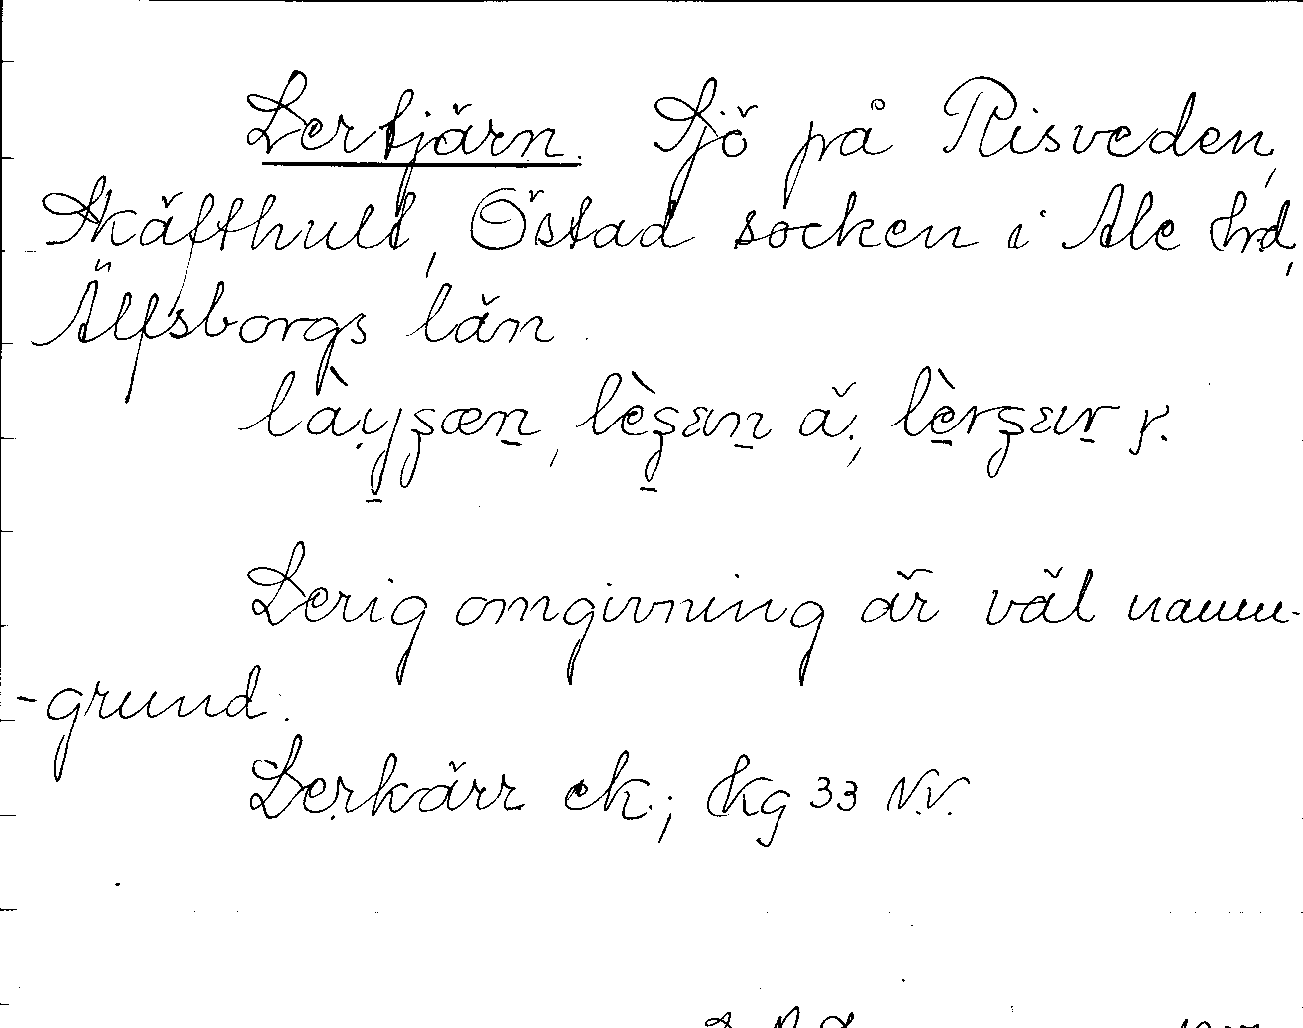 Lertjärn. Sjö på Risveden,
Skäfthult, Östad socken i Ale hrd,
Älfsborgs län.
Lerig omgivning är väl namn-
-grund.
Lerkärr ek.; Kg 33 N.V.